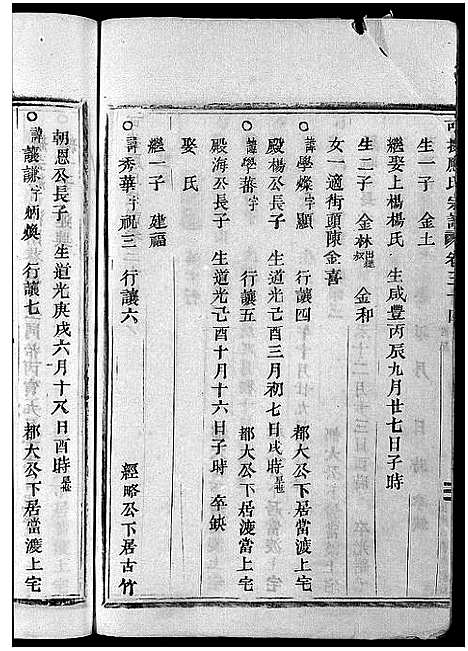 生一子 金土
繼娶上楊楊氏 生咸豐丙辰九月廿七日子時
生二子 金林出繼 金和
女一適街頭陳金喜
諱學燦字顯 行讓四 都大公下居當渡上宅
殿楊公長子 生道光己酉三月初七日戌時
諱學蕃字 行讓五 都大公下居渡當上宅
殿海公長子 生道光己酉十月十六日子時 卒缺
娶氏
繼一子 建福
諱秀華字祝三 行讓六 經略公下居古竹
朝恩公長子 生道光庚戌六月十八日酉時
諱讓謙字炳煥 行讓七 都大公下居當渡上宅